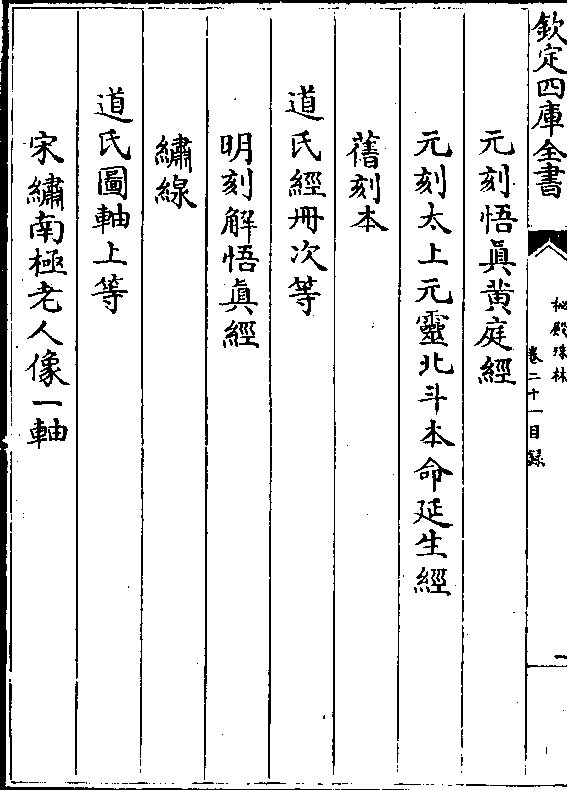 欽定四庫全書
秘殿珠林
卷二十一目録
一
元刻悟眞黄庭經
元刻太上元靈北斗本命延生經
舊刻本
道氏經冊次等
明刻解悟眞經
繡線
道氏圖軸上等
宋繡南極老人像一軸